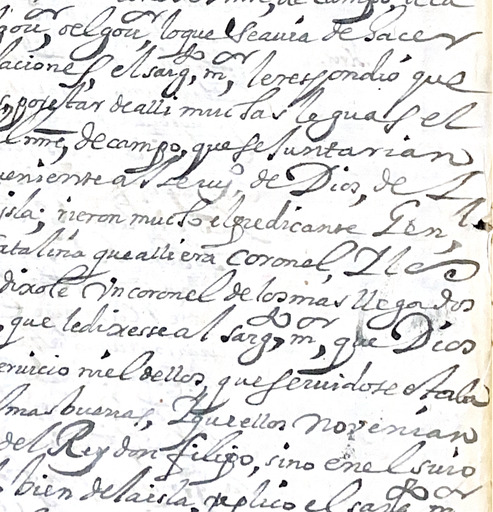 gou^or, o el gou^or, lo que se auia de hacer
laciones, el sarg^to, m^or, le respondio que
por estar de alli muchas leguas el
m^e, de campo, que se Juntarian
ueniente al seruy^o, de Dios, de
isla; rieron mucho el predicante Gen,
atalina que alli era coronel, Y les
dixole Vn coronel de los mas llegados
, que le dixesse al sarg^to, m^or, que Dios
eruicio ni el dellos, que seruidose estaba
mas buenas, Y que ellos no venian
del Rey don filipo, sino en el suio
bien de la isla, replico el sarg^to m^or